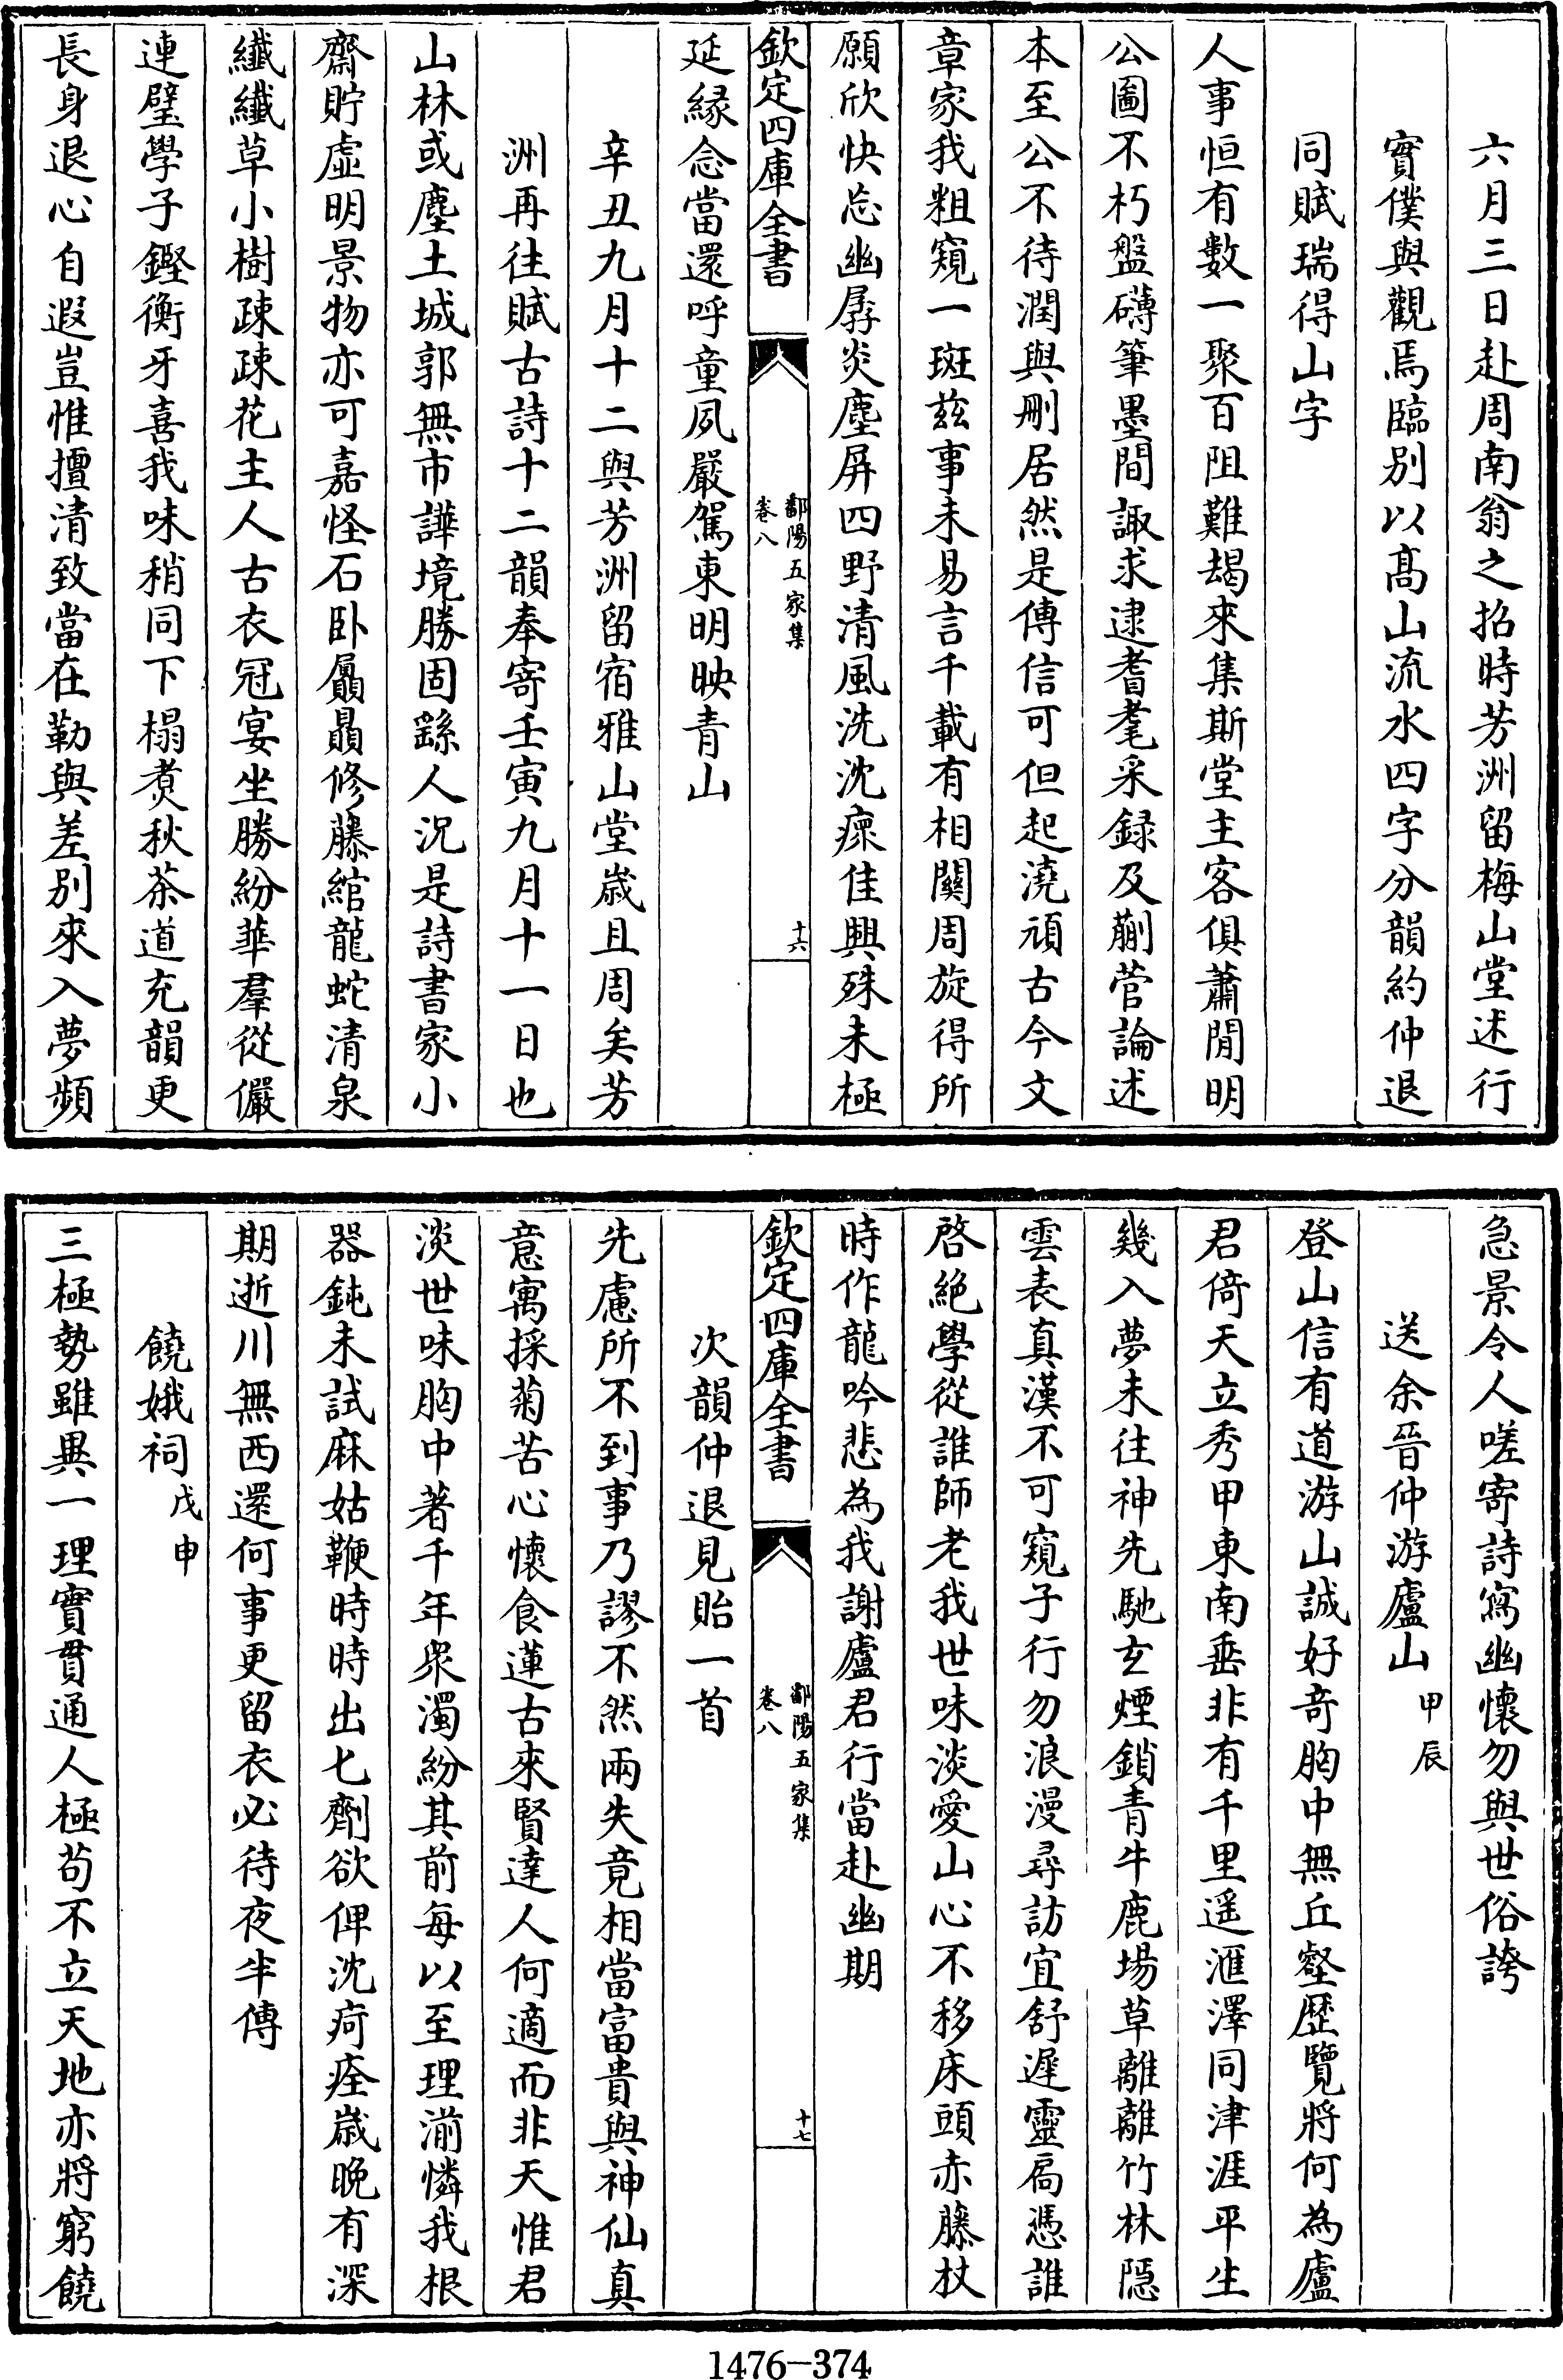 六月三日赴周南翁之招時芳洲留梅山堂述行
實僕與觀焉臨别以髙山流水四字分韻約仲退
同賦瑞得山字
人事恒有數一聚百阻難朅來集斯堂主客俱蕭閒明
公圖不朽盤礴筆墨間諏求逮耆耄采録及蒯菅論述
本至公不待潤與刪居然是傳信可但起澆頑古今文
章家我粗窺一斑兹事未易言千載有相關周旋得所
願欣快忘幽孱炎塵屏四野清風洗沈瘝佳興殊未極
欽定四庫全書
鄱陽五家集
卷八
十六
延縁念當還呼童夙嚴駕東明映青山
辛丑九月十二與芳洲留宿雅山堂歳且周矣芳
洲再往賦古詩十二韻奉寄壬寅九月十一日也
山林或塵土城郭無市譁境勝固繇人況是詩書家小
齋貯虛明景物亦可嘉怪石卧贔贔修藤綰龍蛇清泉
纎纎草小樹疎疎花主人古衣冠宴坐勝紛華羣從儼
連璧學子鏗衡牙喜我味稍同下榻煑秋茶道充韻更
長身退心自遐豈惟擅清致當在勒與差别來入夢頻
急景令人嗟寄詩寫幽懷勿與世俗誇
送余晉仲游廬山甲辰
登山信有道游山誠好奇胸中無丘壑歷覽將何為廬
君倚天立秀甲東南垂非有千里遥滙澤同津涯平生
幾入夢未往神先馳玄煙鎖青牛鹿場草離離竹林隠
雲表真漢不可窺子行勿浪漫尋訪宜舒遲靈扃憑誰
啓絶學從誰師老我世味淡愛山心不移床頭赤藤杖
時作龍吟悲為我謝廬君行當赴幽期
欽定四庫全書
鄱陽五家集
卷八
十七
次韻仲退見貽一首
先慮所不到事乃謬不然兩失竟相當富貴與神仙真
意寓採菊苦心懷食蓮古來賢達人何適而非天惟君
淡世味胸中著千年衆濁紛其前每以至理湔憐我根
器鈍未試麻姑鞭時時出七劑欲俾沈痾痊歳晚有深
期逝川無西還何事更留衣必待夜半傳
饒娥祠戊申
三極勢雖異一理實貫通人極苟不立天地亦將窮饒
1476-374